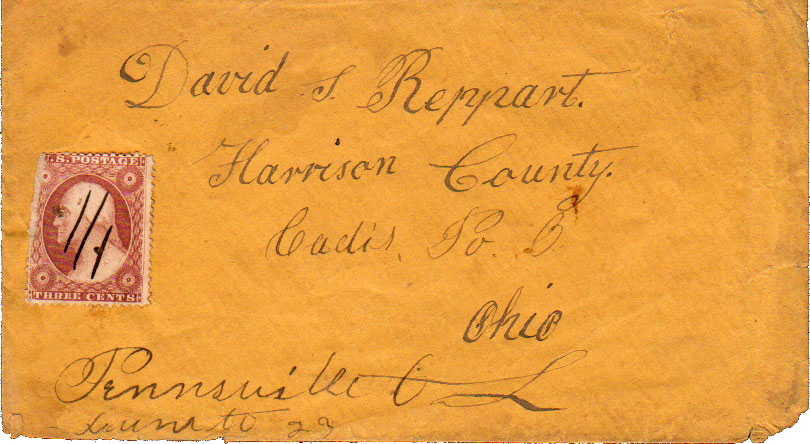 David S. Reppart.
Harrison County.
Cadis, Po. O
Ohio
U.S. POSTAGE
THREE CENTS
Pennsville O
23